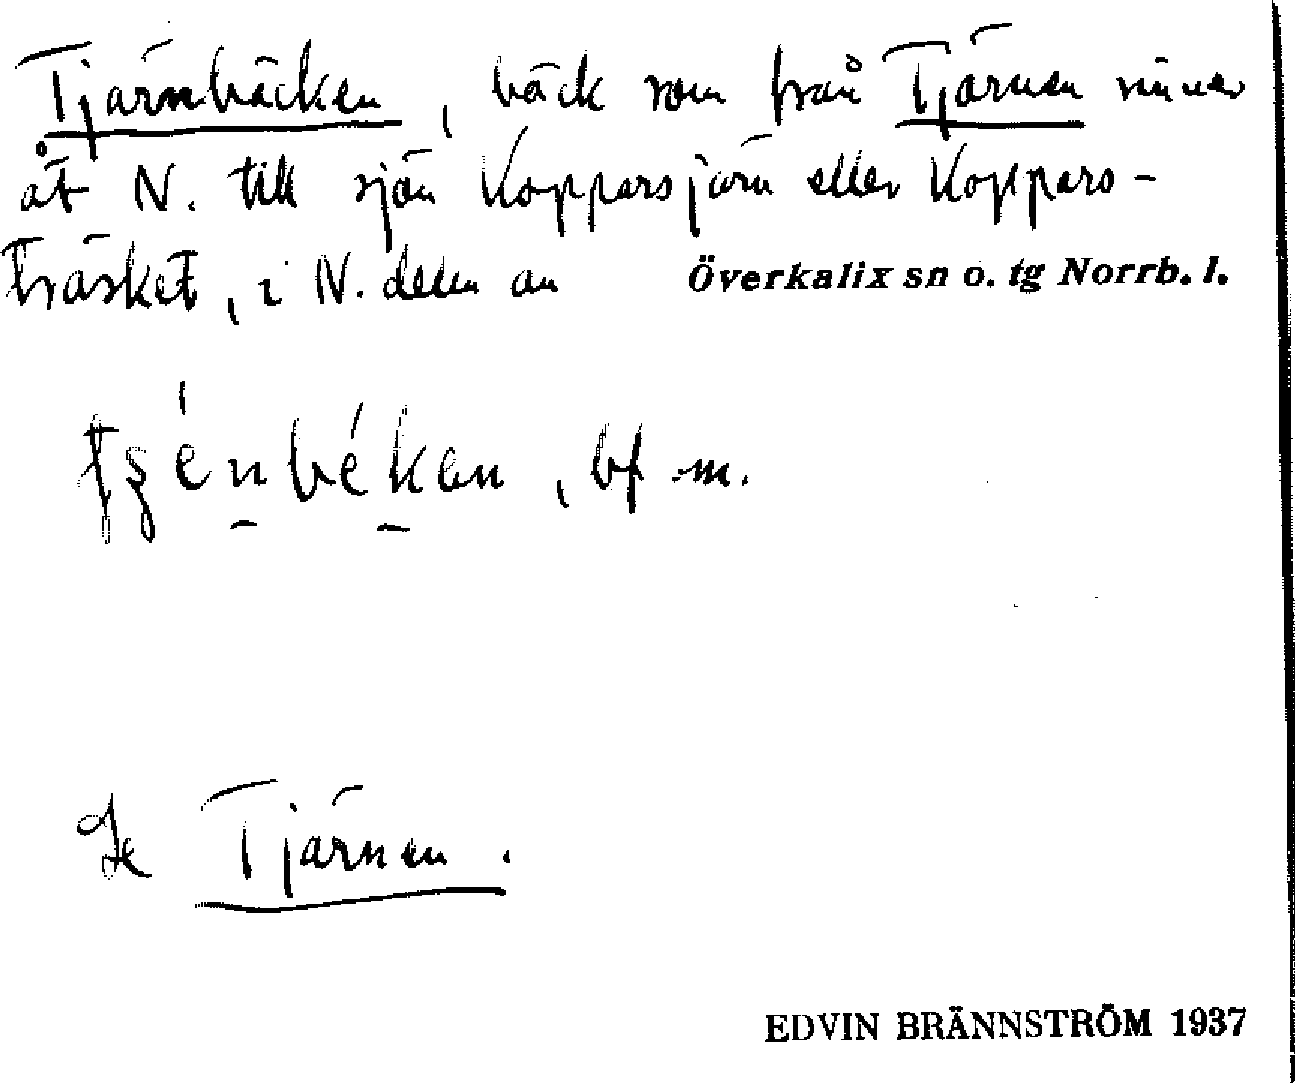 Tjärnbäcken, bäck som från Tjärnen rinner
åt N. till sjön Kopparsjärn eller Koppars-
träsket, i N. delen av Överkalix sn o. tg Norrb. l.
bf m.
Se Tjärnen.
EDVIN BRÄNNSTRÖM 1937